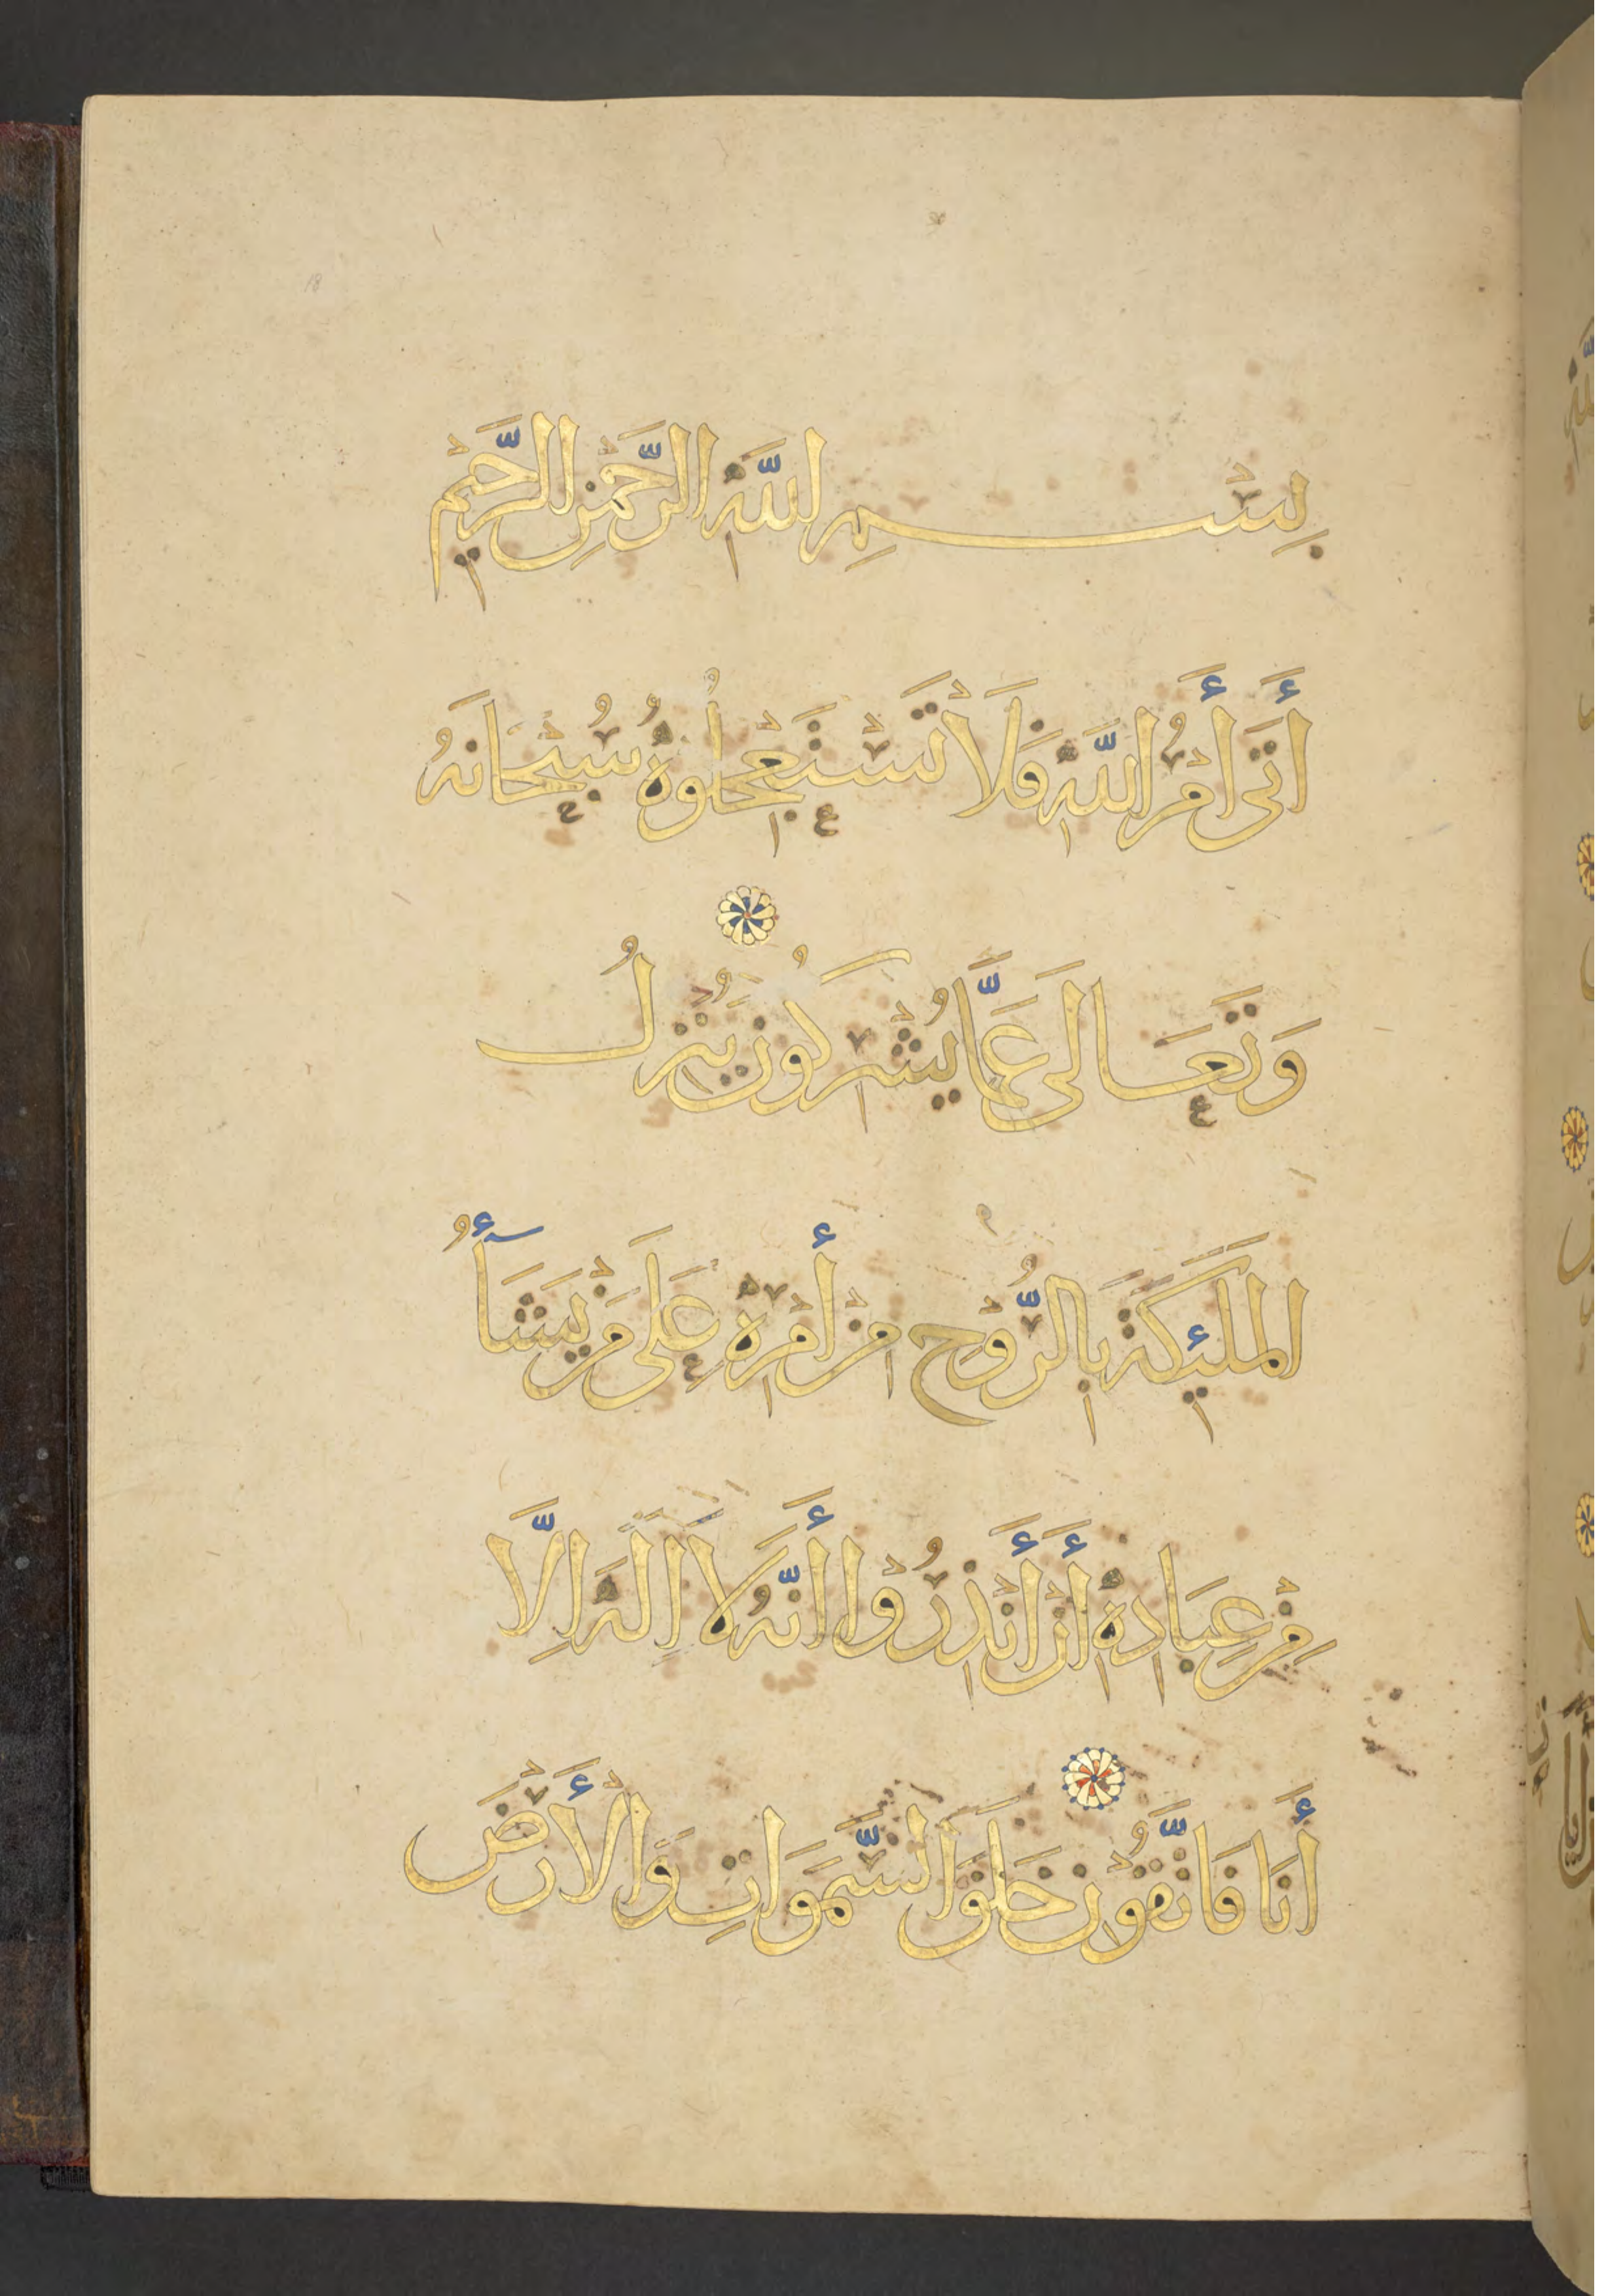 بِسْمِ اللَّهِ الرَّحْمٰنِ الرَّحِيْمِ
أَتَى أَمْرُ اللَّهِ فَلَا تَسْتَعْجِلُوهُ سُبْحَانَهُ
وَتَعَالَى عَمَّا يُشْرِكُونَ يُنْزِلُ
المَلَئِكَةَ بِالرُّوْحِ مِنْ أَمْرِهِ عَلَى مَنْ يَشَأُ
مِنْ عِبَادِهِ أَنْ أَنْذِرُوْا أَنَّهُ لَا إِلَهَ إِلَّا
أَنَا فَاتَّقُوْنِ خَلَقَ السَّمَوَاتِ وَالْأَرْضَ